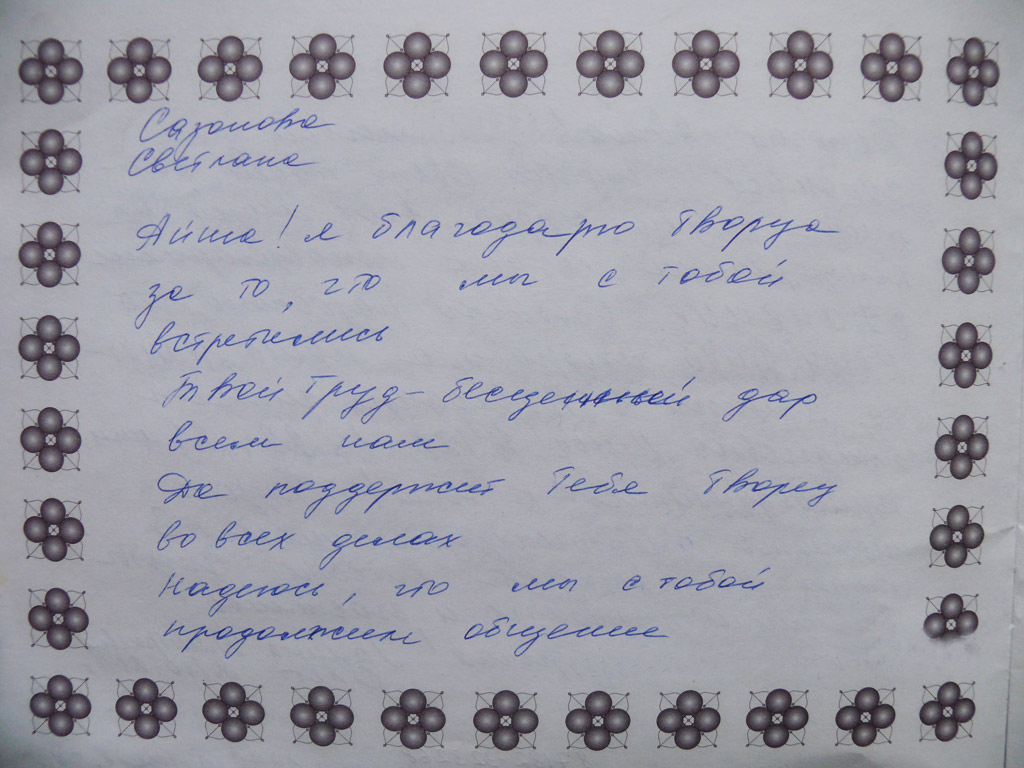 Сазонова
Светлана
Айша! я благодарю Творца
за то, что мы с тобой
встретились
Твой труд - бесценный дар
всем нам
Да поддержит Тебя Творец
во всех делах
Надеюсь, что мы с тобой
продолжим общение